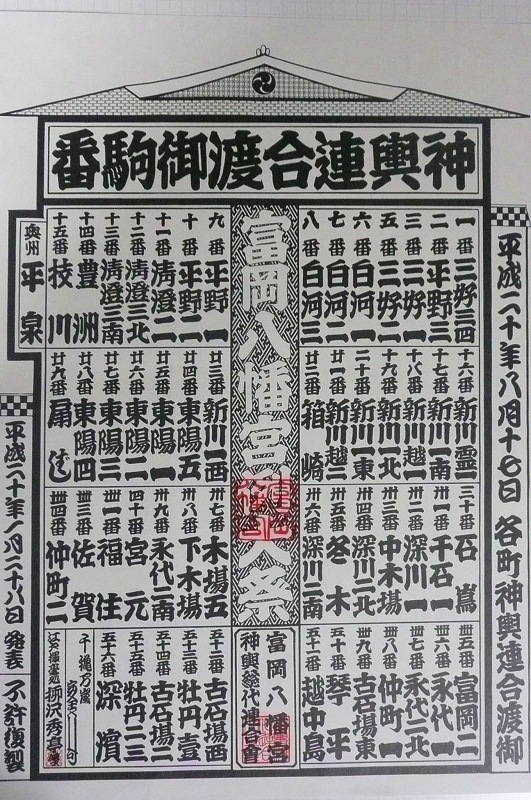 神輿連合渡御駒番
平成二十年八月十七日 各町神輿連合渡御
一番 三好三四
二番 平野三
三番 三好一
五番 三好二
六番 白河一
七番 白河二
八番 白河三
富岡八幡宮 大祭
九番 平野一
十番 平野二
十一番 清澄二
十二番 清澄三北
十三番 清澄三南
十四番 豊洲
十五番 枝川
奥州 平泉
十六番 新川霊一
十七番 新川一南
十八番 新川越一
十九番 新川一
二十番 新川一東
廿一番 新川越二
廿二番 箱崎
廿三番 新川一西
廿四番 東陽五
廿五番 東陽一
廿六番 東陽二
廿七番 東陽三
廿八番 東陽四
廿九番 扇橋
三十番 石島
卅一番 千石一
卅二番 深川一
卅三番 中木場
卅四番 深川二北
卅五番 冬木
卅六番 深川二南
卅七番 木場五
卅八番 下木場
卅九番 永代二南
四十番 宮元
卌一番 福住
卌三番 佐賀
卌四番 仲町二
卌五番 富岡二
卌六番 永代一
卌七番 永代二北
卌八番 仲町一
卌九番 古石場東
五十番 琴平
五十一番 越中島
富岡八幡宮
神輿総代連合會
五十二番 古石場西
五十三番 牡丹壹
五十四番 古石場二
五十五番 牡丹二三
五十六番 深濱
千龝万歳
平成二十年八月二十八日 発表 不許複製